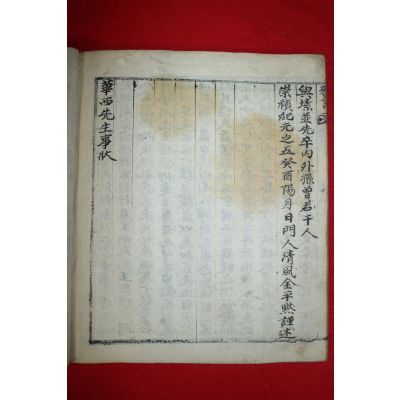 與埰並先卒內外孫曾若干人
崇禎紀元之五癸酉陽月日門人清風金平黙謹述
華西先生事狀